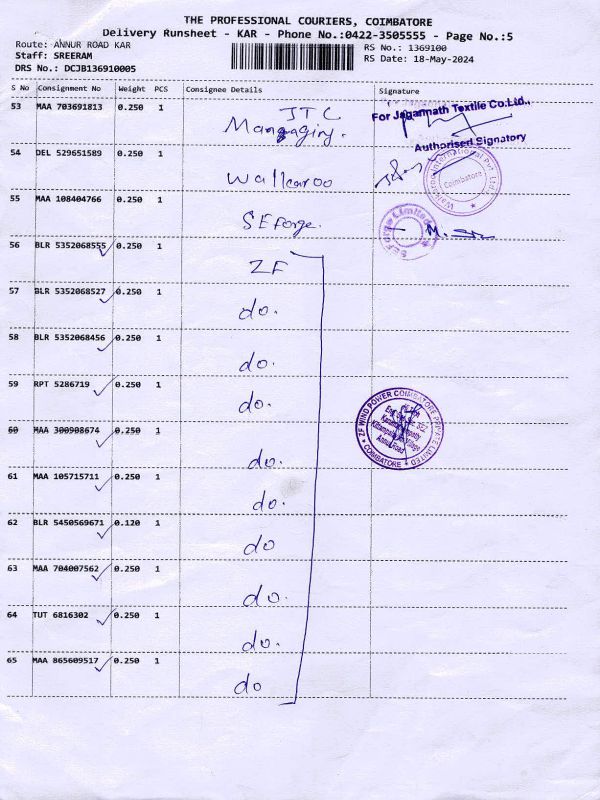 THE PROFESSIONAL COURIERS, COIMBATORE
Delivery Runsheet - KAR - Phone No.:0422-3505555 - Page No.:5
Route: ANNUR ROAD KAR
RS No.: 1369100
Staff: SREERAM
RS Date: 18-May-2024
DRS No.: DCJB136910005
S No Consignment No Weight PCS Consignee Details Signature
53 MAA 703691813 0.250 1 JTC
Managing.
For Jagannath Textile Co.Ltd.,
Authorised Signatory
54 DEL 529651589 0.250 1
Wallcaroo
Coimbatore
55 MAA 108404766 0.250 1
SEforge.
SEForge Limited
56 BLR 5352068555 0.250 1
ZF
57 BLR 5352068527 0.250 1
do.
58 BLR 5352068456 0.250 1
do.
59 RPT 5286719 0.250 1
do.
ZF WIND POWER COIMBATORE PRIVATE LIMITED
COIMBATORE
Annur Road
60 MAA 300908674 0.250 1
do.
61 MAA 105715711 0.250 1
do.
62 BLR 5450569671 0.120 1
do
63 MAA 704007562 0.250 1
do.
64 TUT 6816302 0.250 1
do.
65 MAA 865609517 0.250 1
do